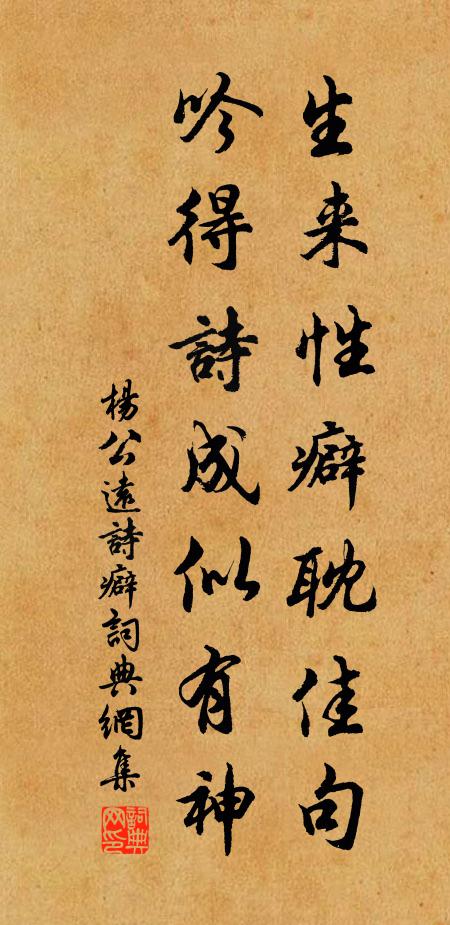 生来性癖耽佳句
吟得詩成似有神
楊公遠詩癖詞典網集
詞典网印